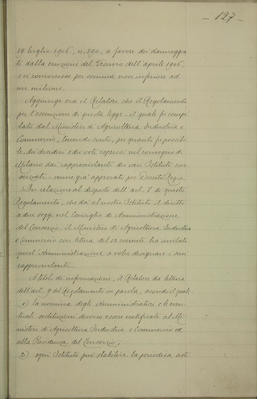 - 127 -
19 luglio 1906, n. 390, a favore dei danneggia
ti dalla eruzione del Vesuvio dell'aprile 1906,
e si concorresse per somma non inferiore ad
un milione.
Aggiunge ora il Relatore che il Regolamento
per l'esecuzione di questa legge - il quale fu compi
lato dal Ministero di Agricoltura Industria e
Commercio, tenendo conto, per quanto fu possibi
le, dei desideri e dei voti espressi nel convegno di
Milano dai rappresentanti dei vari Istituti con
sorziati - venne già approvato per Decreto Regio.
In relazione al disposto dell'art. 8 di questo
Regolamento, che dà al nostro Istituto il diritto
a due voti nel Consiglio di Amministrazione
del Consorzio, il Ministero di Agricoltura Industria
e Commercio con lettera del corrente ha invitato
quest'Amministrazione a voler designare i suoi
rappresentanti.
A titolo di informazione, il Relatore dà lettura
dell'art. 9 del Regolamento in parola, secondo il quale:
1) la nomina degli Amministratori e le even
tuali sostituzioni devono essere notificate al Mi
nistero di Agricoltura Industria e Commercio ed
alla Presidenza del Consorzio;
2) ogni Istituto può stabilire la periodica